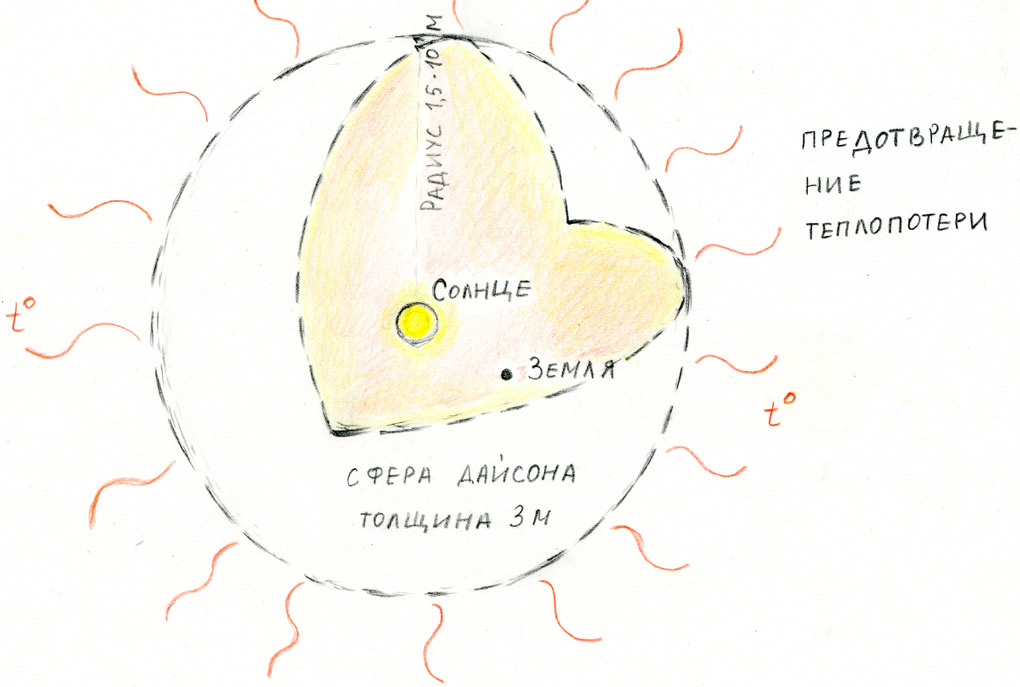 РАДИУС 1,5·10¹¹ М
ПРЕДОТВРАЩЕ-
НИЕ
ТЕПЛОПОТЕРИ
СОЛНЦЕ
t°
ЗЕМЛЯ
t°
СФЕРА ДАЙСОНА
ТОЛЩИНА 3 М